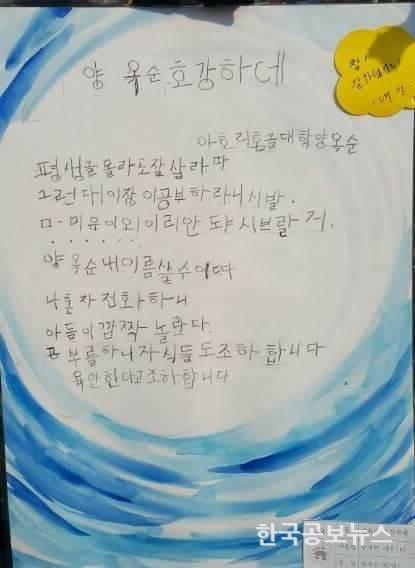 양 옥순 호강하네
참! 잘하셨어요!
-대상-
아호리혼글대학양옥순
평생글몰라도잘살라따
그런다!이장이공부하라니시발.
ㅁ-미유이외이리안돠시브랄거.
양옥순내이름쓸수이따
나혼자전화하니
아들이깜짝놀란다.
공부를하니자식들도조하합니다
욕안한다고조하합니다
한국공보뉴스